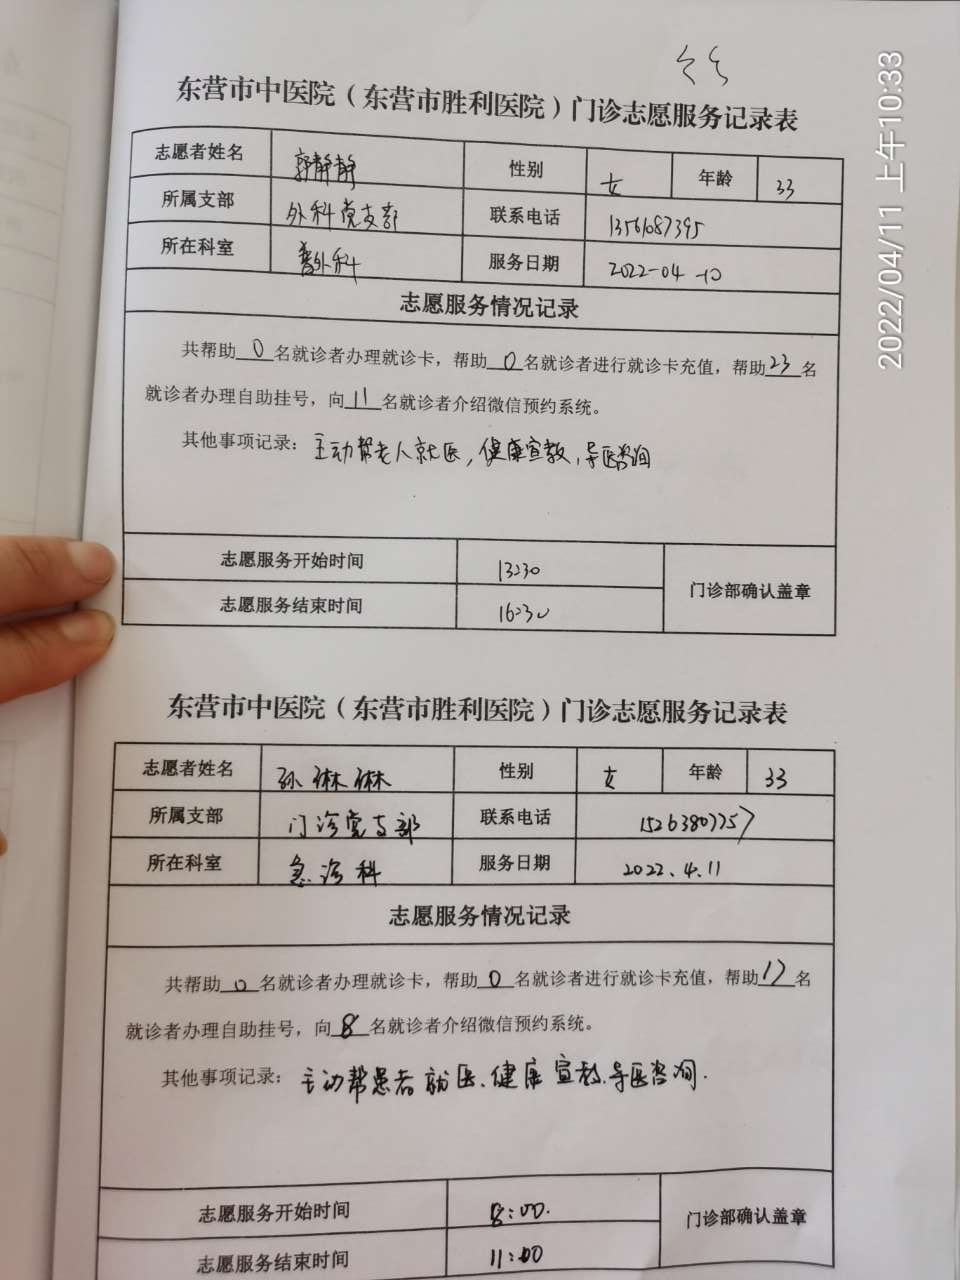 东营市中医院（东营市胜利医院）门诊志愿服务记录表
志愿者姓名 郭静静 性别 女 年龄 33
所属支部 外科党支部 联系电话 13561087395
所在科室 普外科 服务日期 2022-04-10
志愿服务情况记录
共帮助0名就诊者办理就诊卡，帮助0名就诊者进行就诊卡充值，帮助23名
就诊者办理自助挂号，向11名就诊者介绍微信预约系统。
其他事项记录：主动帮老人就医，健康宣教，导医咨询
志愿服务开始时间 13:30 门诊部确认盖章
志愿服务结束时间 16:30
东营市中医院（东营市胜利医院）门诊志愿服务记录表
志愿者姓名 孙琳琳 性别 女 年龄 33
所属支部 门诊党支部 联系电话 15263807757
所在科室 急诊科 服务日期 2022.4.11
志愿服务情况记录
共帮助0名就诊者办理就诊卡，帮助0名就诊者进行就诊卡充值，帮助17名
就诊者办理自助挂号，向8名就诊者介绍微信预约系统。
其他事项记录：主动帮患者就医、健康宣教、导医咨询.
志愿服务开始时间 8:00. 门诊部确认盖章
志愿服务结束时间 11:00
2022/04/11 上午10:33